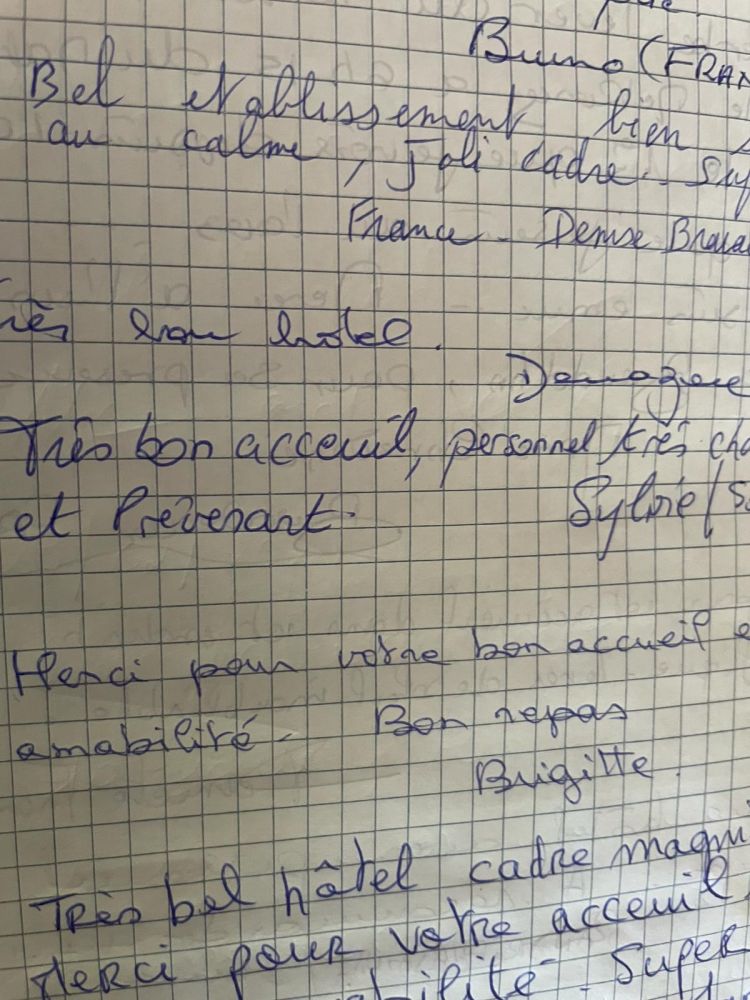 Bruno (FRAN
Bel etablissement bien
au calme, joli cadre. Su
France - Denise
rès bon hotel.
Très bon acceuil, personnel très cha
et Prévenant.
Sylvie (S
Merci pour votre bon accueil e
amabilité - Bon repas
Brigitte.
Très bel hôtel cadre magni
Merci pour votre acceuil,
bilité - Super